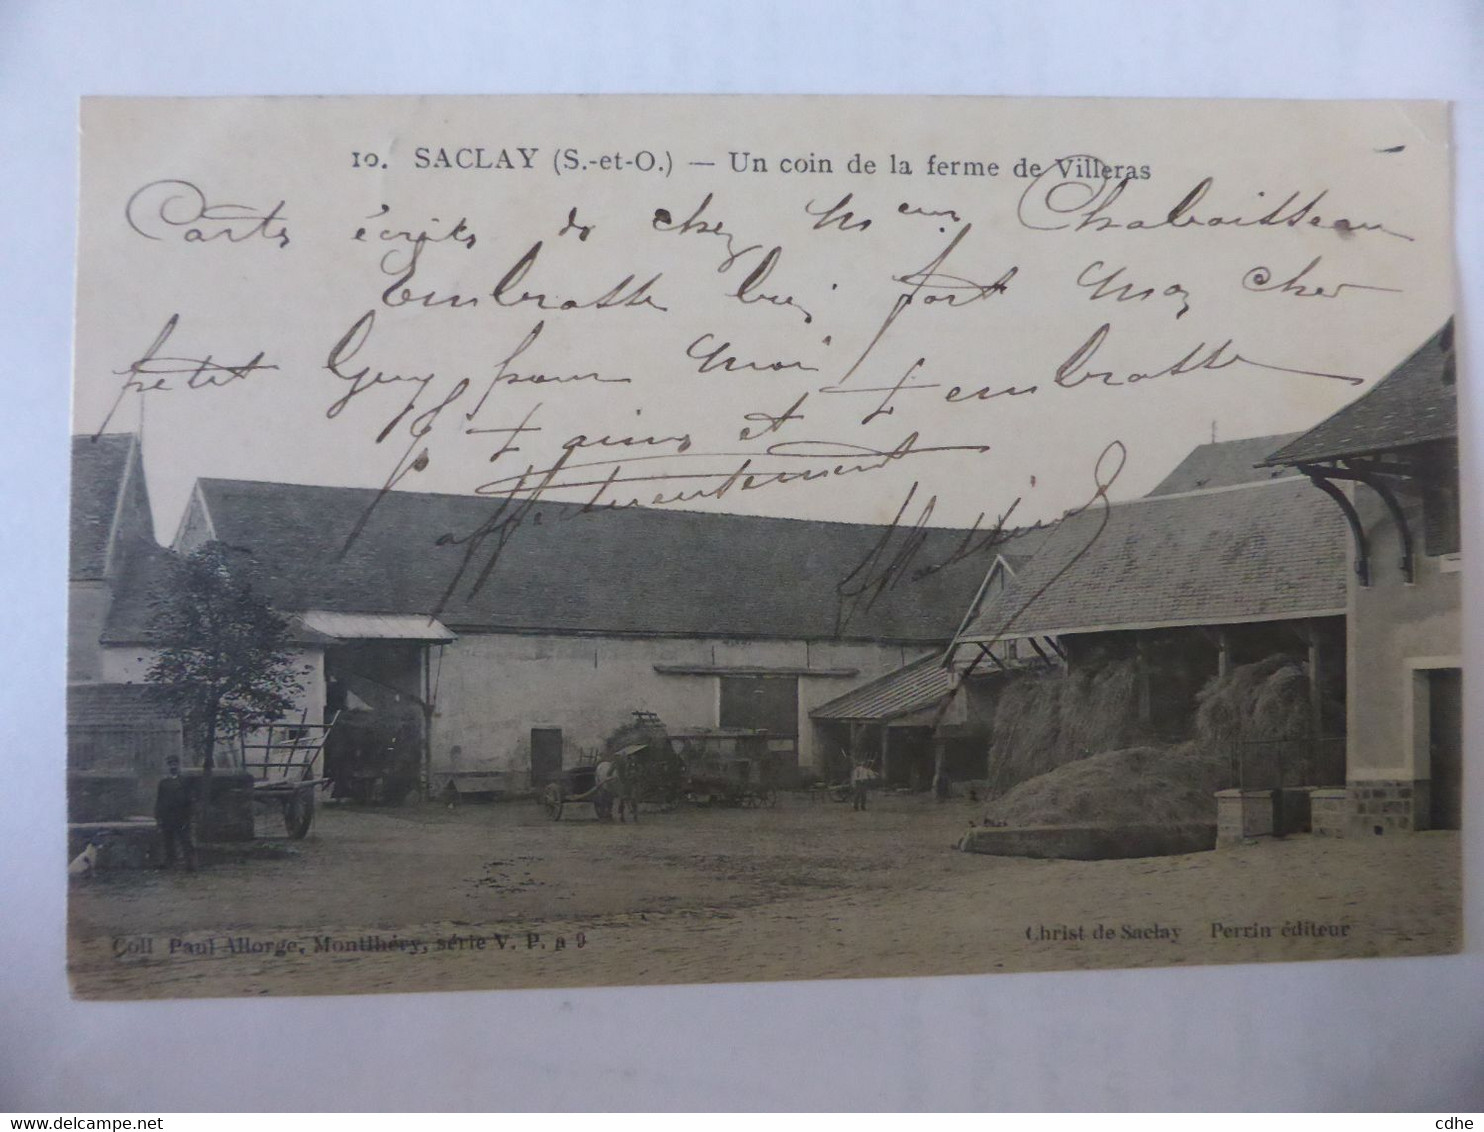 10. SACLAY (S.-et-O.) — Un coin de la ferme de Villeras
Carte écrite de chez Mr Chaboisseau
Embrasse bien fort mon cher
petit Guy pour moi
Je t aime et t embrasse
affectueusement
Coll Paul Allorge, Montlhéry, série V. P. n 9
Christ de Saclay Perrin éditeur
www.delcampe.net
cdhe